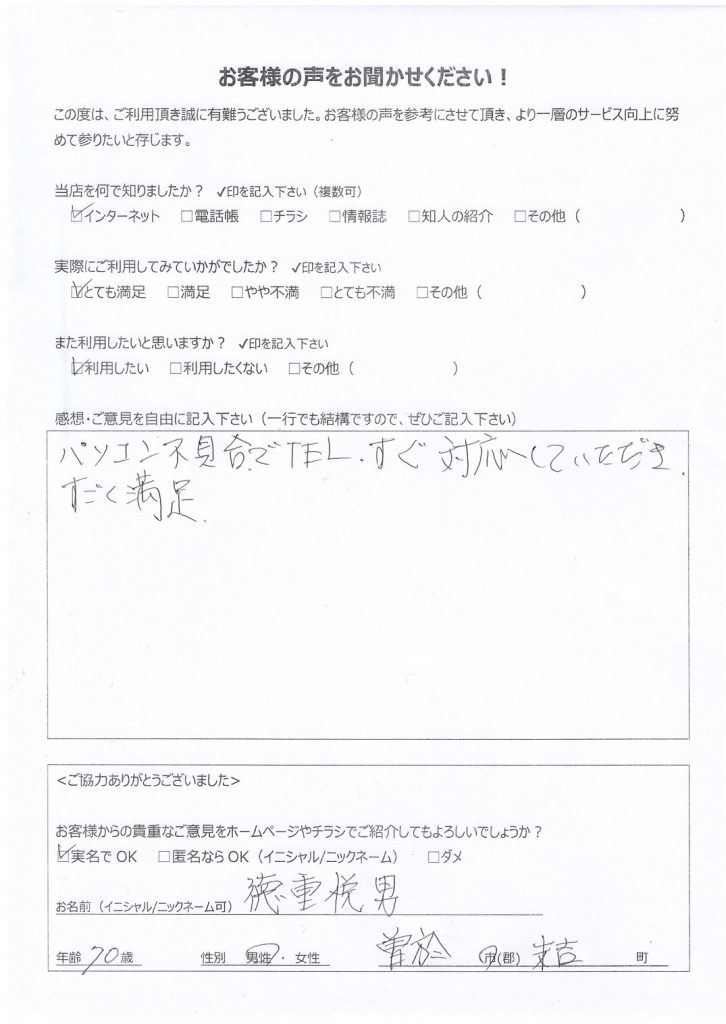 お客様の声をお聞かせください！
この度は、ご利用頂き誠に有難うございました。お客様の声を参考にさせて頂き、より一層のサービス向上に努
めて参りたいと存じます。
当店を何で知りましたか？ ✓印を記入下さい（複数可）
☑インターネット □電話帳 □チラシ □情報誌 □知人の紹介 □その他（ ）
実際にご利用してみていかがでしたか？ ✓印を記入下さい
☑とても満足 □満足 □やや不満 □とても不満 □その他（ ）
また利用したいと思いますか？ ✓印を記入下さい
☑利用したい □利用したくない □その他（ ）
感想・ご意見を自由に記入下さい（一行でも結構ですので、ぜひご記入下さい）
パソコン不具合でTEL.すぐ対応していただき
すごく満足.
<ご協力ありがとうございました>
お客様からの貴重なご意見をホームページやチラシでご紹介してもよろしいでしょうか？
☑実名でOK □匿名ならOK（イニシャル/ニックネーム） □ダメ
お名前（イニシャル/ニックネーム可） 徳重悦男
年齢 70 歳 性別 男性・女性 曽於 市(郡) 末吉 町